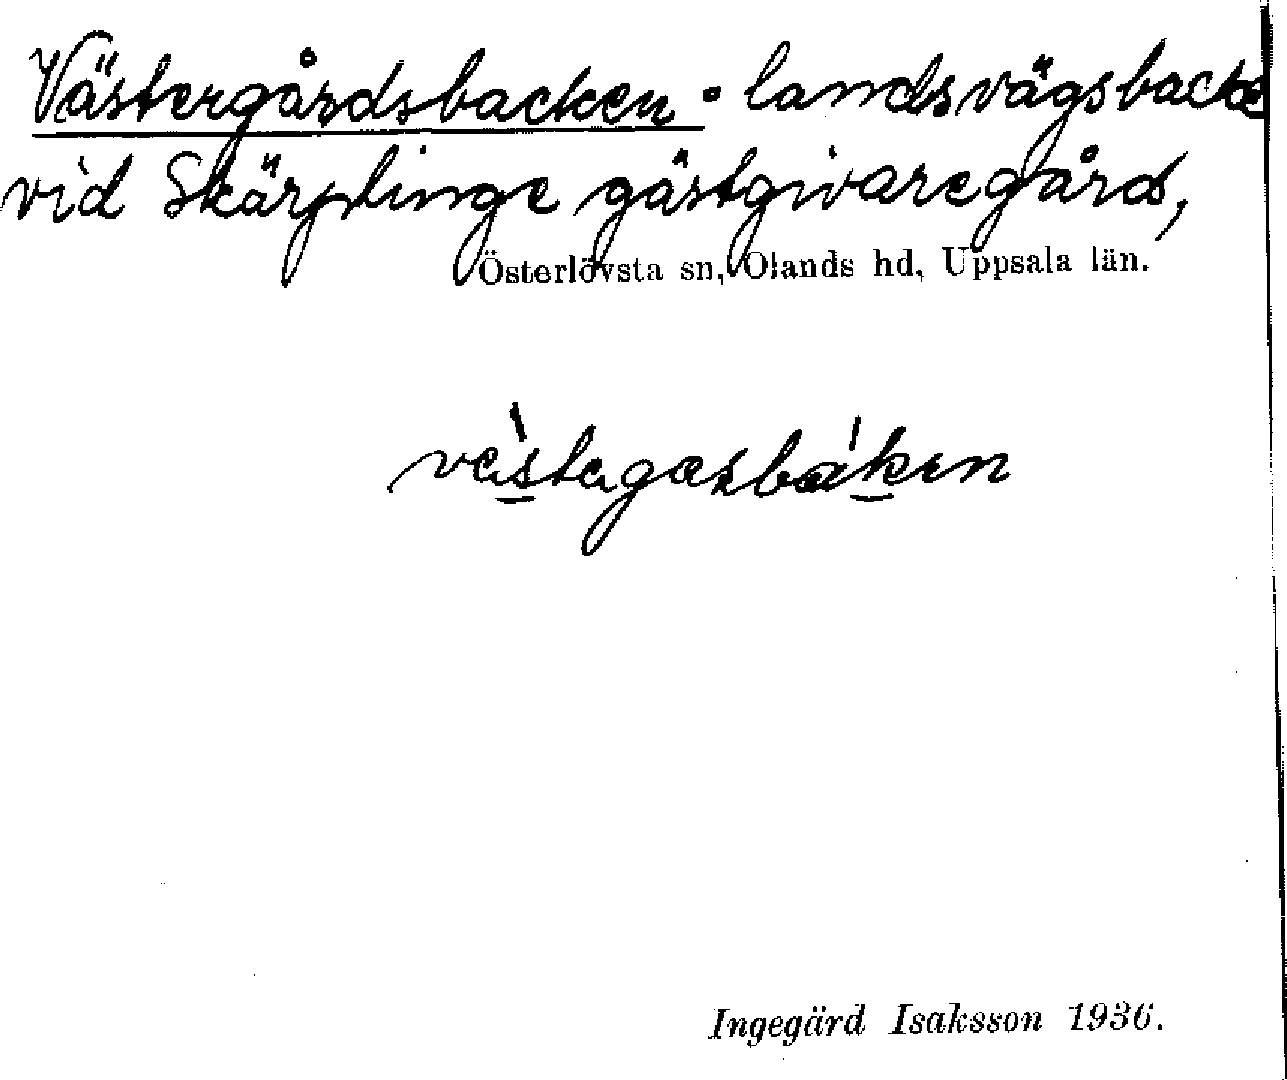 Västergårdsbacken. landsvägsbacke
vid Skärplinge gästgivaregård,
Österlövsta sn, Olands hd, Uppsala län.
Ingegärd Isaksson 1936.